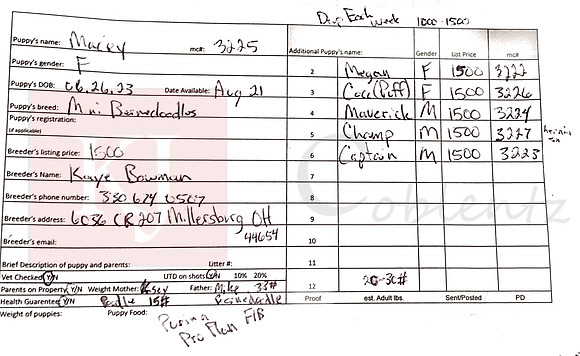 Drop Each week 1000-1500
Puppy's name: Macey mc#: 3225 Additional Puppy's name: Gender List Price mc#
Puppy's gender: F 2 Megan F 1500 3222
Puppy's DOB: 06.26.23 Date Available: Aug 21 3 Coco (Puff) F 1500 3226
Puppy's breed: Mini Bernedoodles 4 Maverick M 1500 3224
Puppy's registration:
(if applicable) 5 Champ M 1500 3227
Breeder's listing price: 1500 6 Captain M 1500 3223
Breeder's Name: Kaye Bowman 7
Breeder's phone number: 330 674 0507 8
Breeder's address: 6036 CR 207 Millersburg OH 9
44654
Breeder's email: 10
Brief Description of puppy and parents: Litter #: 11
Vet Checked Y/N UTD on shots Y/N 10% 20% 12 20-30#
Parents on Property Y/N Weight Mother: Father: Mike 33#
Health Guarantee Y/N Poodle 15# Bernedoodle Proof est. Adult lbs. Sent/Posted PD
Weight of puppies: Puppy Food: Purina Pro Plan FIB
Coblentz